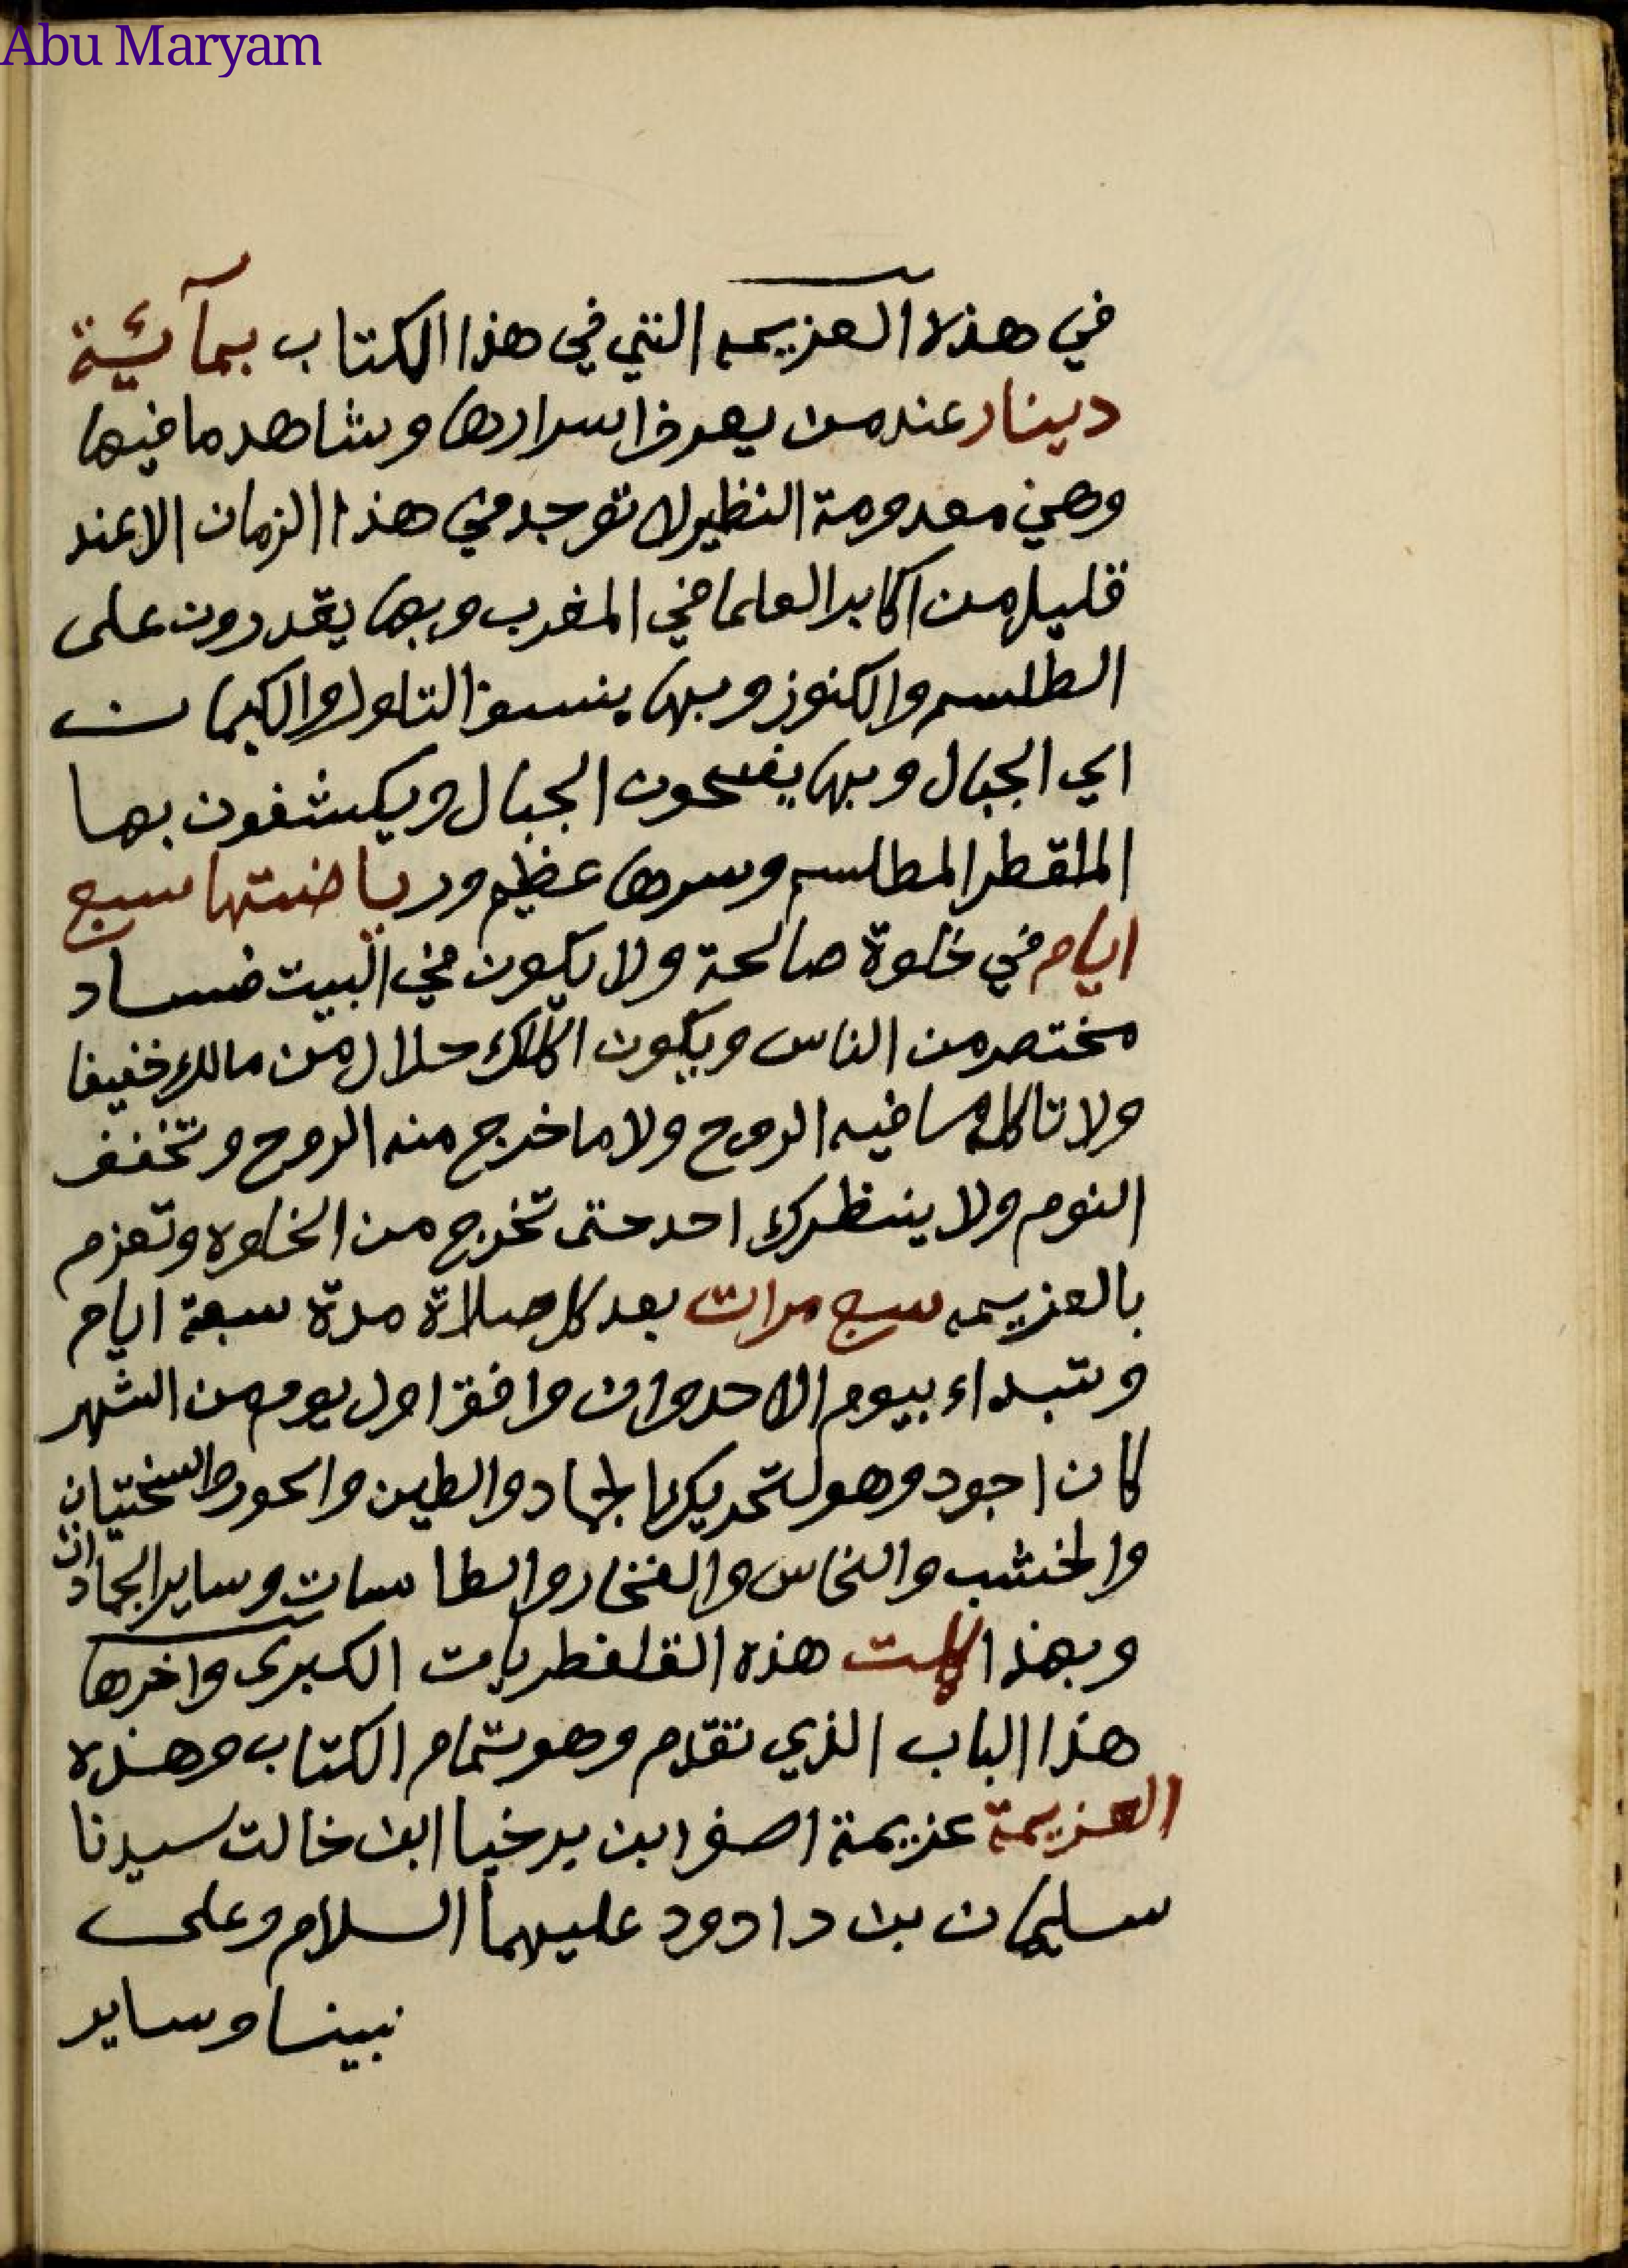 Abu Maryam
في هذه العزيمه التي في هذا الكتاب بمآئية
دينار عند من يعرف اسرارها وشاهد ما فيها
وهي معدومة النظير لا توجد في هذا الزمان الا عند
قليل من اكابر العلما في المغرب وبها يقدرون على
الطلسم والكنوز وبها ينسفو التلول والكيمان
اي الجبال وبها يفسحون الجبال ويكشفون بها
الملقطر المطلسم وسرها عظيم ورياضتها سبع
ايام في خلوة صالحة ولا يكون في البيت فساد
مختصر من الناس ويكون اكلك حلال من مالك خفيفا
ولا تاكل ما فيه الروح ولا ما خرج منه الروح وتخفف
النوم ولا ينظرك احد حتى تخرج من الخلوه وتعزم
بالعزيمه سبع مرات بعد كل صلاة مدة سبعة ايام
وتبداء بيوم الاحد وان وافق اول يوم من الشهر
كان اجود وهو لتحريك الجماد والطين والحور والسختيان
والخشب والنحاس والفخار والطاسات وساير الجمادات
وبهذا كملت هذه القلفطريات الكبرى واخرها
هذا الباب الذي تقدم وهو تمام الكتاب وهذه
العزيمة عزيمة اصف ابن برخيا ابن خالت سيدنا
سليمان بن داود عليهما السلام وعلى
نبينا وساير